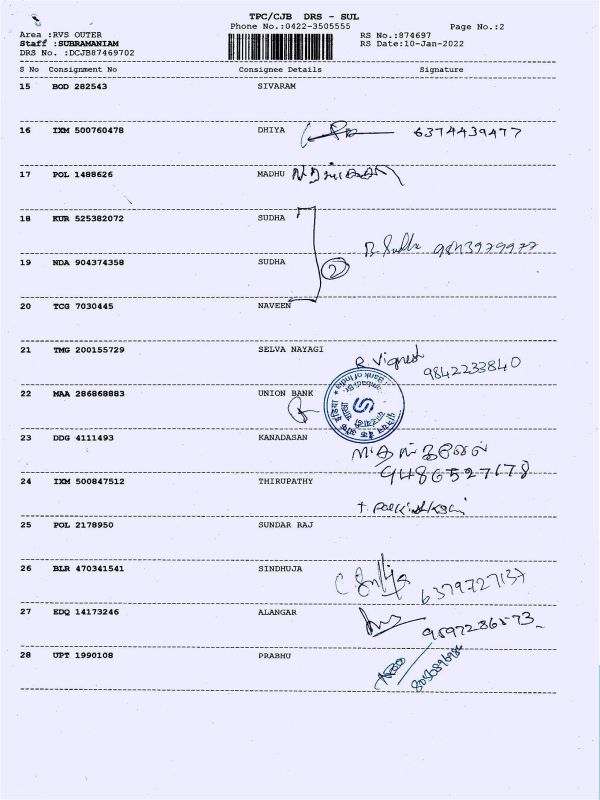 TPC/CJB DRS - SUL
Phone No.:0422-3505555 Page No.:2
Area :RVS OUTER RS No.:874697
Staff :SUBRAMANIAM RS Date:10-Jan-2022
DRS No. :DCJB87469702
S No Consignment No Consignee Details Signature
15 BOD 282543 SIVARAM
16 IXM 500760478 DHIYA 6374439477
17 POL 1488626 MADHU
18 KUR 525382072 SUDHA
B. Sudha 9843979977
19 NDA 904374358 SUDHA 2
20 TCG 7030445 NAVEEN
21 TMG 200155729 SELVA NAYAGI R. Vignesh
9842233840
22 MAA 286868883 UNION BANK
23 DDG 4111493 KANADASAN
9486527178
24 IXM 500847512 THIRUPATHY
25 POL 2178950 SUNDAR RAJ
26 BLR 470341541 SINDHUJA
6379727137
27 EDQ 14173246 ALANGAR
28 UPT 1990108 PRABHU